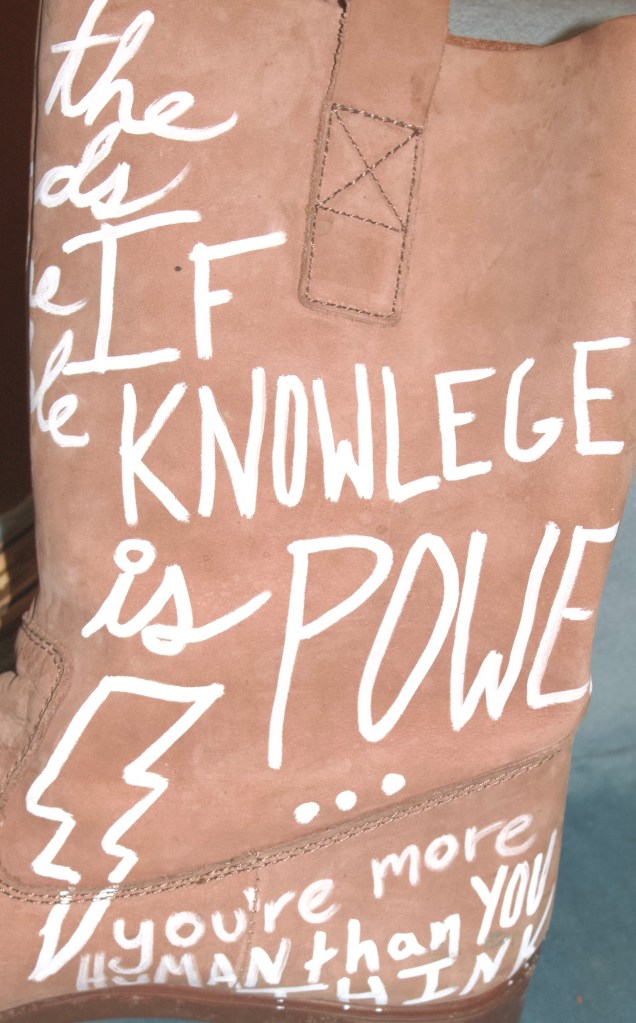 the
IF
KNOWLEGE
is POWE
...
you're more
HUMAN than YOU
THINK